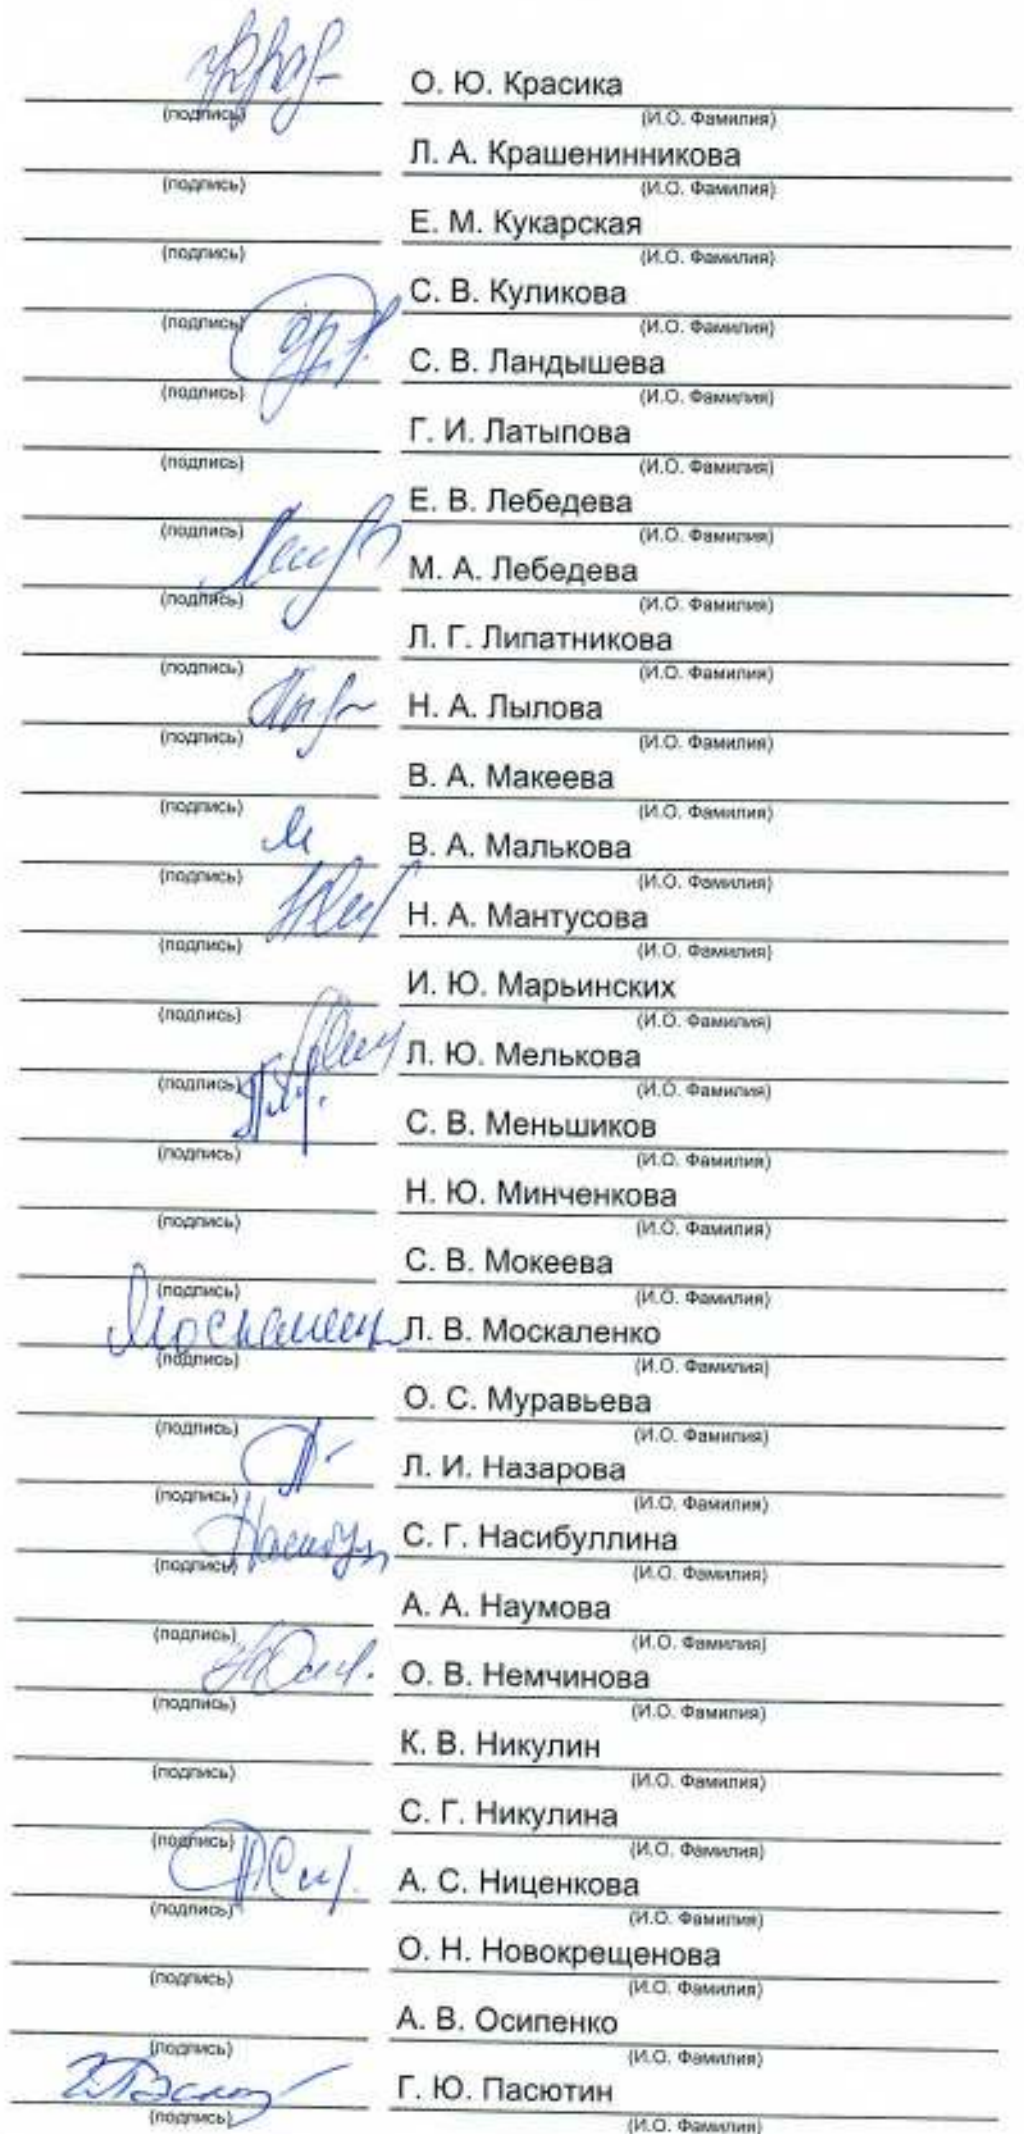 О. Ю. Красика
(подпись) (И.О. Фамилия)
Л. А. Крашенинникова
(подпись) (И.О. Фамилия)
Е. М. Кукарская
(подпись) (И.О. Фамилия)
С. В. Куликова
(подпись) (И.О. Фамилия)
С. В. Ландышева
(подпись) (И.О. Фамилия)
Г. И. Латыпова
(подпись) (И.О. Фамилия)
Е. В. Лебедева
(подпись) (И.О. Фамилия)
М. А. Лебедева
(подпись) (И.О. Фамилия)
Л. Г. Липатникова
(подпись) (И.О. Фамилия)
Н. А. Лылова
(подпись) (И.О. Фамилия)
В. А. Макеева
(подпись) (И.О. Фамилия)
В. А. Малькова
(подпись) (И.О. Фамилия)
Н. А. Мантусова
(подпись) (И.О. Фамилия)
И. Ю. Марьинских
(подпись) (И.О. Фамилия)
Л. Ю. Мелькова
(подпись) (И.О. Фамилия)
С. В. Меньшиков
(подпись) (И.О. Фамилия)
Н. Ю. Минченкова
(подпись) (И.О. Фамилия)
С. В. Мокеева
(подпись) (И.О. Фамилия)
Л. В. Москаленко
(подпись) (И.О. Фамилия)
О. С. Муравьева
(подпись) (И.О. Фамилия)
Л. И. Назарова
(подпись) (И.О. Фамилия)
С. Г. Насибуллина
(подпись) (И.О. Фамилия)
А. А. Наумова
(подпись) (И.О. Фамилия)
О. В. Немчинова
(подпись) (И.О. Фамилия)
К. В. Никулин
(подпись) (И.О. Фамилия)
С. Г. Никулина
(подпись) (И.О. Фамилия)
А. С. Ниценкова
(подпись) (И.О. Фамилия)
О. Н. Новокрещенова
(подпись) (И.О. Фамилия)
А. В. Осипенко
(подпись) (И.О. Фамилия)
Г. Ю. Пасютин
(подпись) (И.О. Фамилия)